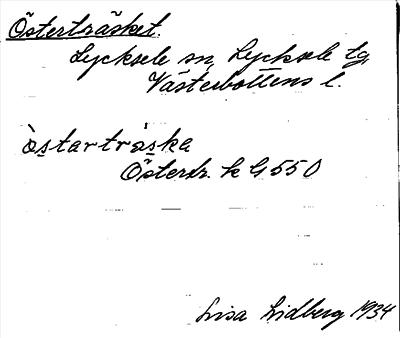 Österträsket.
Lycksele sn, Lycksele tg
Västerbottens l.
òstartráska
Östertr. k G 550
Lisa Lidberg 1934